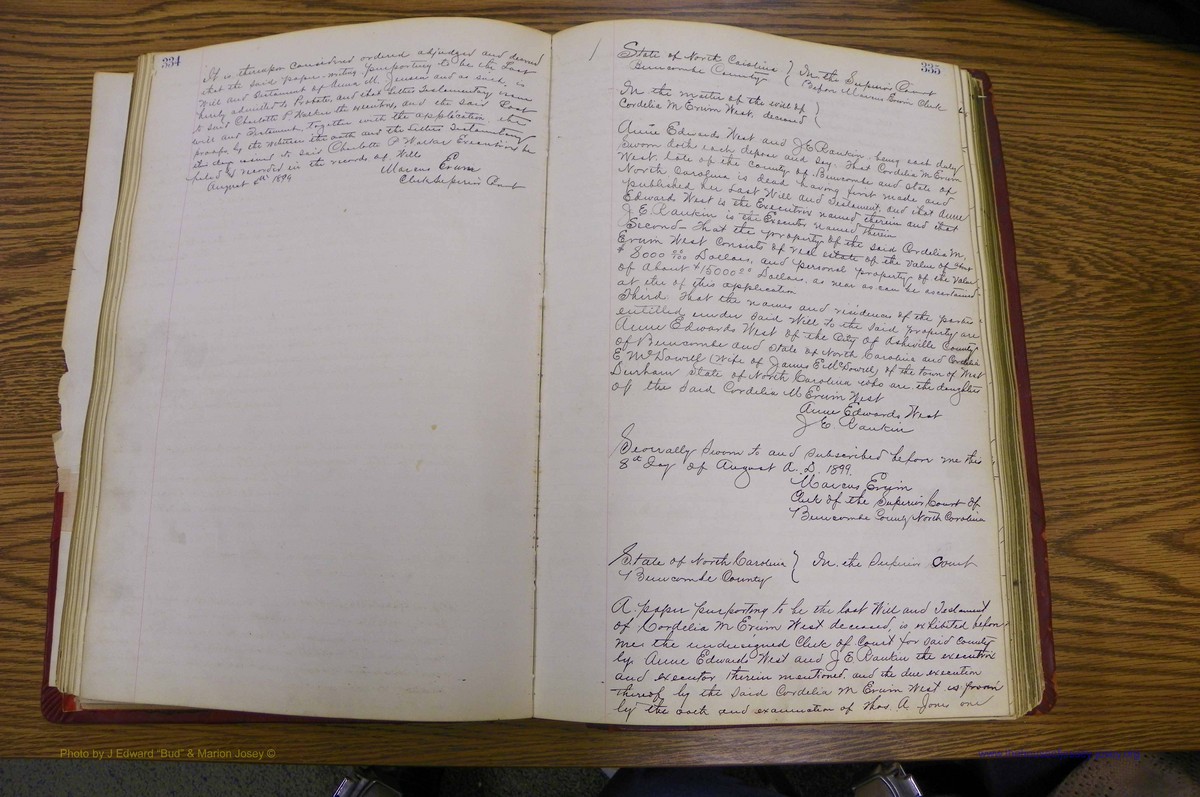 334
It is therupon considered ordered adjudged and decreed
that the said paper-writing, purporting to be the Last
Will and Testament of Anna M. Jensen and as such, is
hereby admitted to Probate, and that Letters Testamentary issue
to said Charlotte P Walker the executrix, and the said Last
will and Testament, together with the application the
proofs by the witness the oath and the Letters Testamentary
this day issued to said Charlotte P Walker Executrix be
filed & recorded in the records of Wills
August 6th 1899
Marcus Erwin
Clerk Superior Court
335
State of North Carolina } In the Superior Court
Buncombe County } Before Marcus Erwin Clerk
In the matter of the will of }
Cordelia M Erwin West, deceased }
Annie Edwards West and J E Rankin being each duly
sworn doth each depose and say, That Cordelia M Erwin
West, late of the County of Buncombe and State of
North Carolina is dead, having first made and
published her Last Will and Testament, and that Annie
Edwards West is the Executrix named therein and that
J. E. Rankin is the Executor named therein
Second - That the property of the said Cordelia M.
Erwin West consists of real estate of the value of about
$ 8000 00/100 Dollars, and personal property of the value
of about $15000 00 Dollars, as near as can be ascertained
at the of this application
Third That the names and residences of the parties
entitled under said Will to the said property are
Annie Edwards West of the City of Asheville County
of Buncombe and State of North Carolina and Cordelia
E McDowell (wife of James E McDowell) of the town of West
Durham State of North Carolina who are the daughter
of the said Cordelia M Erwin West
Annie Edwards West
J E Rankin
Severally Sworn to and subscribed before me this
8th Day of August A. D. 1899.
Marcus Erwin
Clerk of the Superior Court of
Buncombe County North Carolina
State of North Carolina } In the Superior Court
Buncombe County
A. paper purporting to be the last Will and Testament
of Cordelia M Erwin West deceased, is exhibited before
me, the undersigned Clerk of Court for said County
by Annie Edwards West and J E Rankin the executrix
and executor therein mentioned, and the due execution
thereof by the said Cordelia M Erwin West is proven
by the oath and examination of Thos. A. Jones one
Photo by J Edward "Bud" & Marion Josey ©